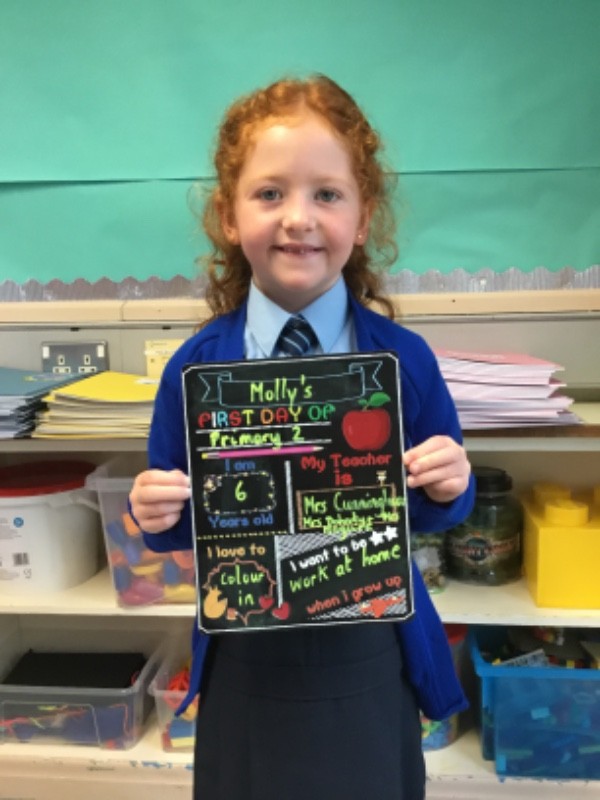 Molly's
FIRST DAY OF
Primary 2
I am
6
Years old
My Teacher
is
Mrs Cunningham
Mrs
I love to
Colour
in
I want to be
work at home
when i grow up